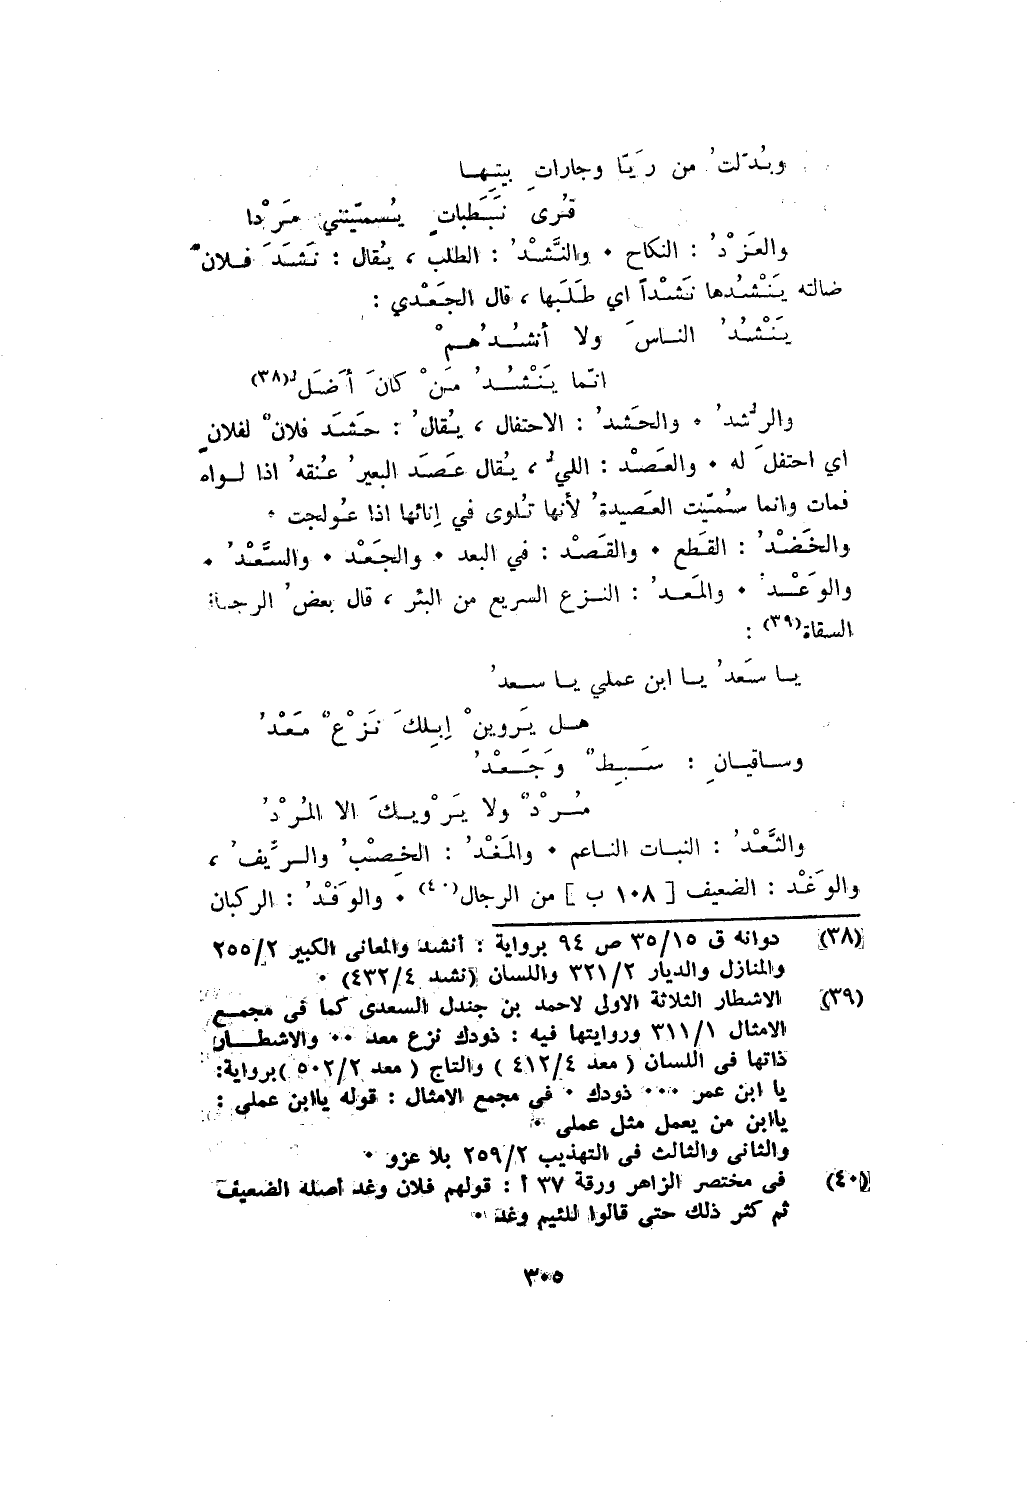 وبُدّلتْ من رَيّا وجاراتِ بيتِهـا
قُرى نَبَطياتٍ يُسمّينني مَرْدا
والعَزْدُ : النكاح ٠ والنَّشْدُ : الطلب ، يُقال : نَشَدَ فـلانٌ
ضالته يَنْشُدها نَشْداً اي طَلَبها ، قال الجَعْدي :
يَنْشُدُ الناسَ ولا أنشُدُهـمْ
انّما يَنْشُـدُ مَنْ كانَ أَضَلّ(٣٨)
والرُشدُ ٠ والحَشدُ : الاحتفال ، يُقالُ : حَشَدَ فلانٌ لفلانٍ
اي احتفلَ له ٠ والعَصْد : الليُّ ، يُقال عَصَدَ البعيرُ عُنقهُ اذا لـواه
فمات وانما سُمّيت العَصيدةُ لأنها تُلوى في إنائها اذا عُولجت ٠
والخَضْدُ : القَطع ٠ والقَصْد : في البعد ٠ والجَعْد ٠ والسَّعْدُ ٠
والوَعْـدُ ٠ والمَعـدُ : النـزع السريع من البئر ، قال بعضُ الرجـاز
السقاة(٣٩) :
يـا سَعدُ يـا ابن عملي يـا سـعدُ
هـل يَروينْ إبِلكَ نَزْعٌ مَعْدُ
وسـاقيانِ : سَـبِطٌ وَجَـعْدُ
مُـرْدٌ ولا يَرْويـكَ الا المُرْدُ
والثَّعْدُ : النبـات النـاعم ٠ والمَغْدُ : الخِصْبُ والـرِّيفُ ،
والوَغْد : الضعيف [ ١٠٨ ب ] من الرجال(٤٠) ٠ والوَفْدُ : الركبان
(٣٨) دوانه ق ٣٥/١٥ ص ٩٤ برواية : أنشد والمعانى الكبير ٢٥٥/٢
والمنازل والديار ٣٢١/٢ واللسان (نشد ٤٣٢/٤) ٠
(٣٩) الاشطار الثلاثة الاولى لاحمد بن جندل السعدى كما فى مجمـع
الامثال ٣١١/١ وروايتها فيه : ذودك نزع معد ٠٠ والاشطـار
ذاتها فى اللسان ( معد ٤١٢/٤ ) والتاج ( معد ٥٠٢/٢ )برواية:
يا ابن عمر ٠٠٠ ذودك ٠ فى مجمع الامثال : قوله ياابن عملى :
ياابن من يعمل مثل عملى ٠
والثانى والثالث فى التهذيب ٢٥٩/٢ بلا عزو ٠
(٤٠) فى مختصر الزاهر ورقة ٣٧ أ : قولهم فلان وغد أصله الضعيف
ثم كثر ذلك حتى قالوا للئيم وغد ٠
٣٠٥